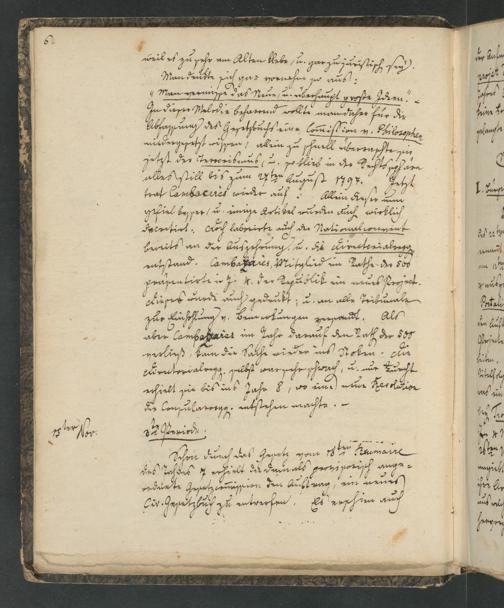 6.
weil es zu sehr am Alten klebe, u. gar zu juristisch sey).
Man drückte sich gar vornehm so aus:
"Man vermisse das Neue, u. überhaupt große Ideen." –
In dieser Melodie beharrend wollte man daher für die
Abfassung des Gesetzbuchs eine Commission v. Philosophen
niedergesetzt wissen; allein zu schnell überraschte sie
jetzt der Terrorismus, u. so blieb in der Rechtssphäre
alles still bis zum August 1794. Jetzt
trat Cambaceres wieder auf: Allein dieser nun
gefiel besser, u. einige Artikel wurden auch wirklich
decretirt. Doch laborirte auch der Nationalconvent
bereits an der Auszehrung, u. die Directorialregg
entstand. Cambaceres, Mitglied im Rathe der 500
präsentirte im J. 4. der Republik ein neues Project.
Dieses wurde auch gedruckt; u. an alle Tribunale
zur Einsicht u. Bemerkungen versandt. Als
aber Cambaceres im Jahr darauf den Rath der 500
verließ, kam die Sache wieder ins Stocken. Die
Directorialregg selbst war sehr schwach, u. nur
erhielt sie bis ins Jahr 8, wo eine neue Revolution
die Consularregg. entstehen machte. –
13ter Nov.
3te Periode.
Schon durch das Gesetz vom 18ten Brumaire
des Jahres 7 erhielt die damals provisorisch ange-
ordnete Gesetzcommission den Auftrag, ein neues
Civ. Gesetzbuch zu entwerfen. Es erschien auch